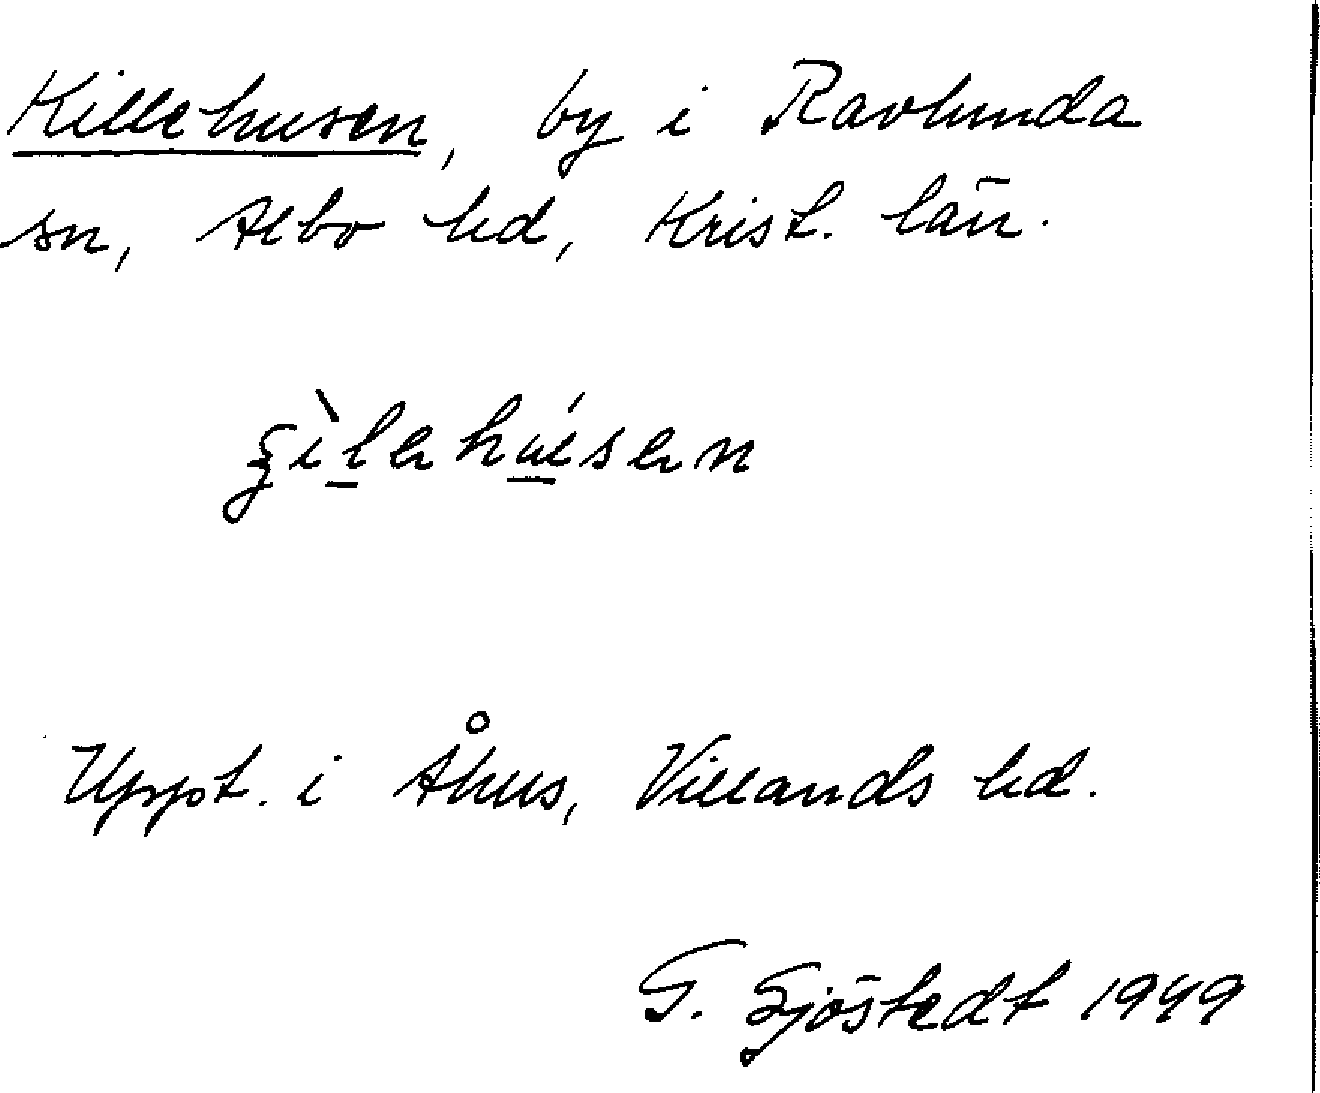 Killehusen, by i Ravlunda
sn, Albo hd, Krist. län.
Uppt. i Åhus, Villands hd.
G. Sjöstedt 1949